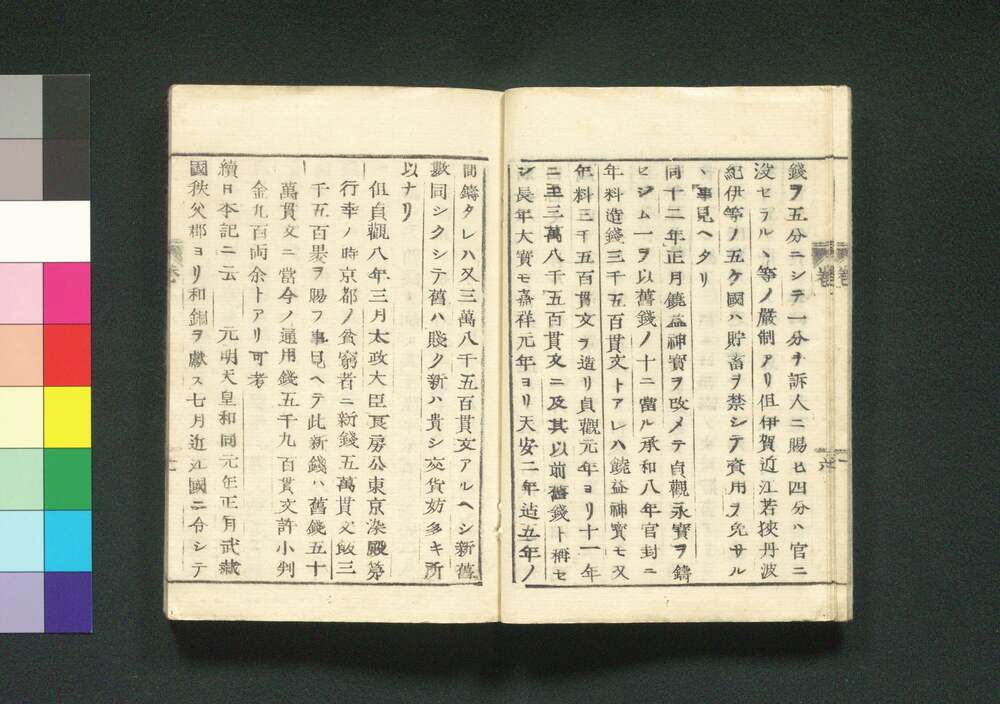 錢ヲ五分ニシテ一分ヲ訴人ニ賜ヒ四分ハ官ニ
沒セラル丶等ノ嚴制アリ但伊賀近江若狹丹波
紀伊等ノ五ケ國ハ貯畜ヲ禁シテ資用ヲ免サル
丶事見ヘタリ
同十二年正月饒益神寶ヲ改メテ貞觀永寶ヲ鑄
ヒシム一ヲ以舊錢ノ十ニ當ル承和八年官封ニ
年料造錢三千五百貫文トアレハ饒益神寶モ又
年料三千五百貫文ヲ造リ貞觀元年ヨリ十一年
ニ至三萬八千五百貫文ニ及其以前舊錢ト稱セ
シ長年大寶モ嘉祥元年ヨリ天安二年迠五年ノ
間鑄タレハ又三萬八千五百貫文アルヘシ新舊
數同シクシテ舊ハ賤ク新ハ貴シ交貨妨多キ所
以ナリ
但貞觀八年三月太政大臣良房公東京染殿第
行幸ノ時京都ノ貧窮者ニ新錢五萬貫文飯三
千五百褁ヲ賜フ事見ヘテ此新錢ハ舊錢五十
萬貫文ニ當今ノ通用錢五千九百貫文許小判
金九百両余トアリ可考
續日本記ニ云 元明天皇和同元年正月武藏
國秩父郡ヨリ和銅ヲ獻ス七月近江國ニ令シテ